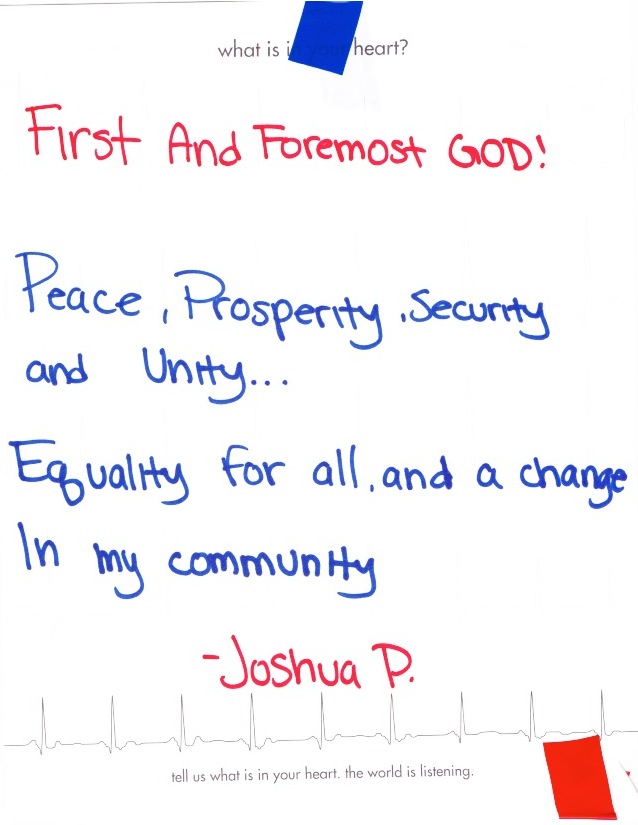 what is in your heart?
First And Foremost GOD!
Peace, Prosperity, Security
and Unity...
Equality for all, and a change
In my community
-Joshua P.
tell us what is in your heart. the world is listening.